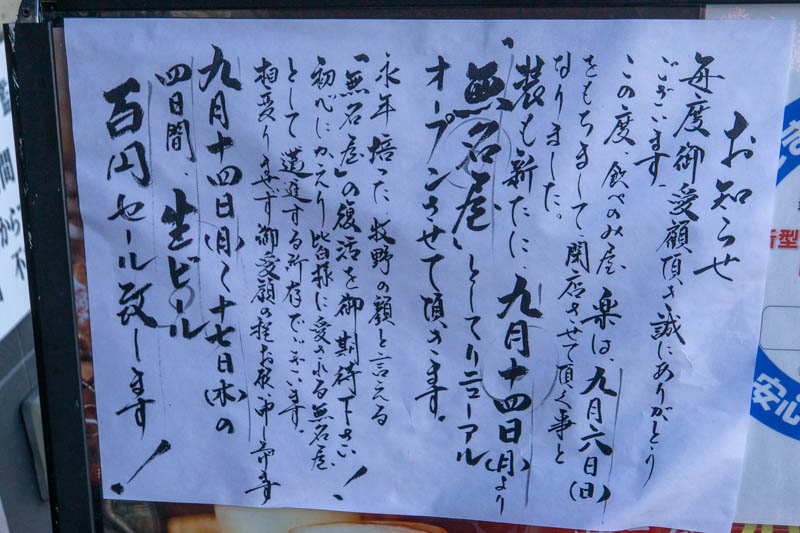 お知らせ
毎度御愛顧頂き誠にありがとう
ございます。
この度、食べのみ屋 楽は、九月六日(日)
をもちまして、閉店させて頂く事と
なりました。
装も新たに、九月十四日(月)より
「無名屋」としてリニューアル
オープンさせて頂きます。
永年培った、牧野の顔と言える
「無名屋」の復活を御期待下さい!
初心にかえり皆様に愛される無名屋
として邁進する所存でございます。
相変りませず御愛顧の程お願い申し上げます
九月十四日(月)〜十七日(木)の
四日間、生ビール
百円セール致します!
間
から
不
新型
安心